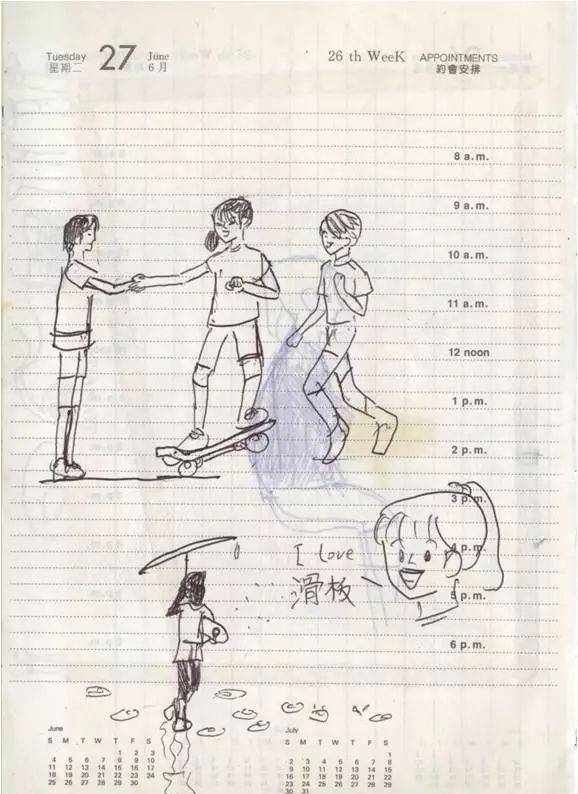 Tuesday 27 June 26 th WeeK APPOINTMENTS
星期二 6 月 約會安排
8 a.m.
9 a.m.
10 a.m.
11 a.m.
12 noon
1 p.m.
2 p.m.
3 p.m.
I love
4 p.m.
滑板
5 p.m.
6 p.m.
June
S M T W T F S
1 2 3
4 5 6 7 8 9 10
11 12 13 14 15 16 17
18 19 20 21 22 23 24
25 26 27 28 29 30
July
S M T W T F S
1
2 3 4 5 6 7 8
9 10 11 12 13 14 15
16 17 18 19 20 21 22
23 24 25 26 27 28 29
30 31